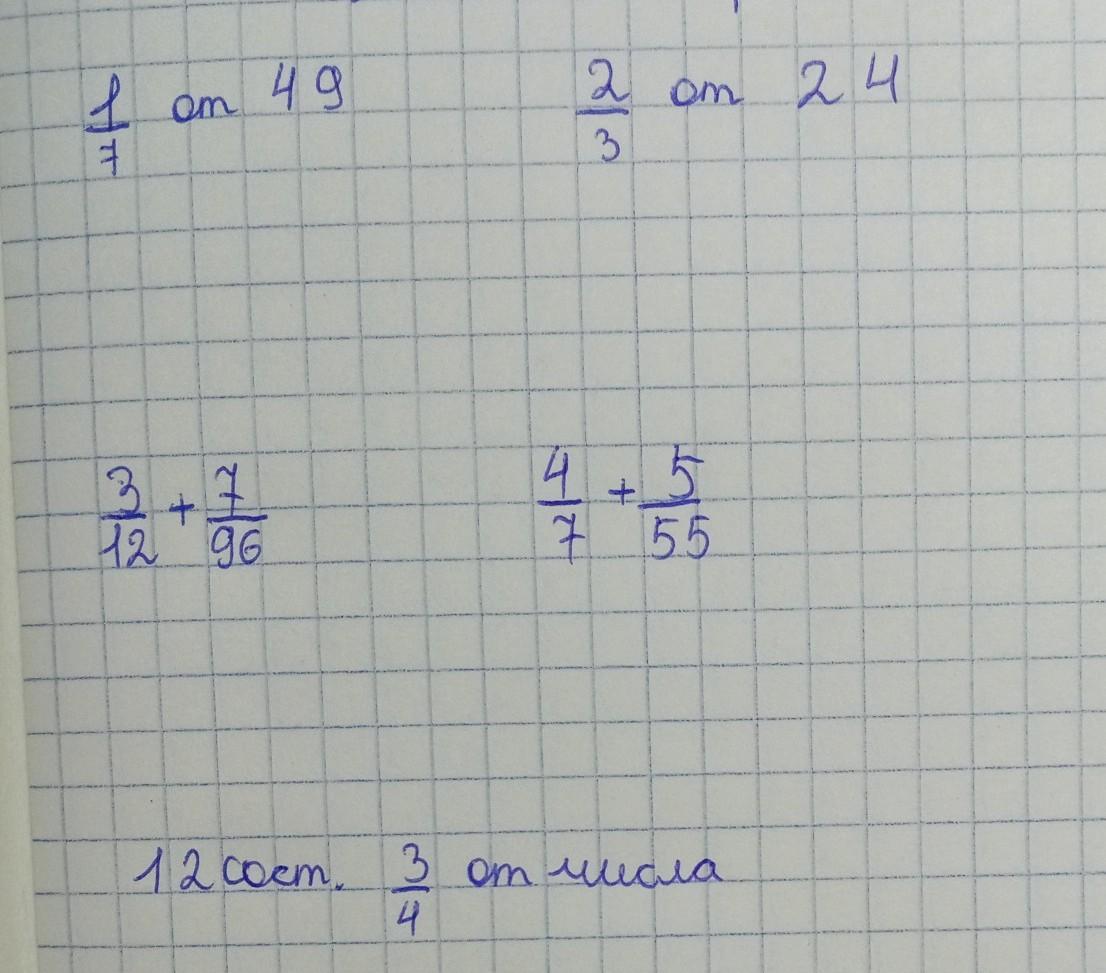 1/7 от 49 2/3 от 24
3/12 + 7/96 4/7 + 5/55
12 сост. 3/4 от числа